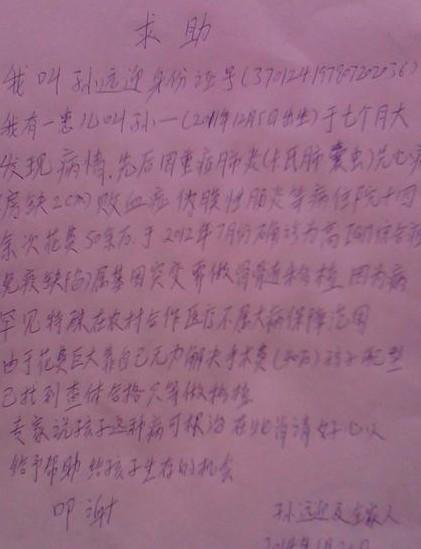 求助
我叫孙远迎身份证号(370124197807202036)
我有一患儿叫孙一(2011年12月5日出生)于七个月大
发现病情.先后因重症肺炎(卡氏肺囊虫)先心病
房缺2cm)败血症 伪膜性肠炎等病住院十四
余次花费50余万.于2012年7月份确诊为高IGM综合病
免疫缺陷)属基因突变 要做骨髓造血移植 因为病
罕见特殊在农村合作医疗不属大病保障范围
由于花费巨大靠自己无力解决手术费(30万)孩子配型
已找到查体合格只等做移植
专家说孩子这种病可根治 在此肯请好心人
给予帮助 给孩子生存的机会
叩谢
孙远迎及全家人